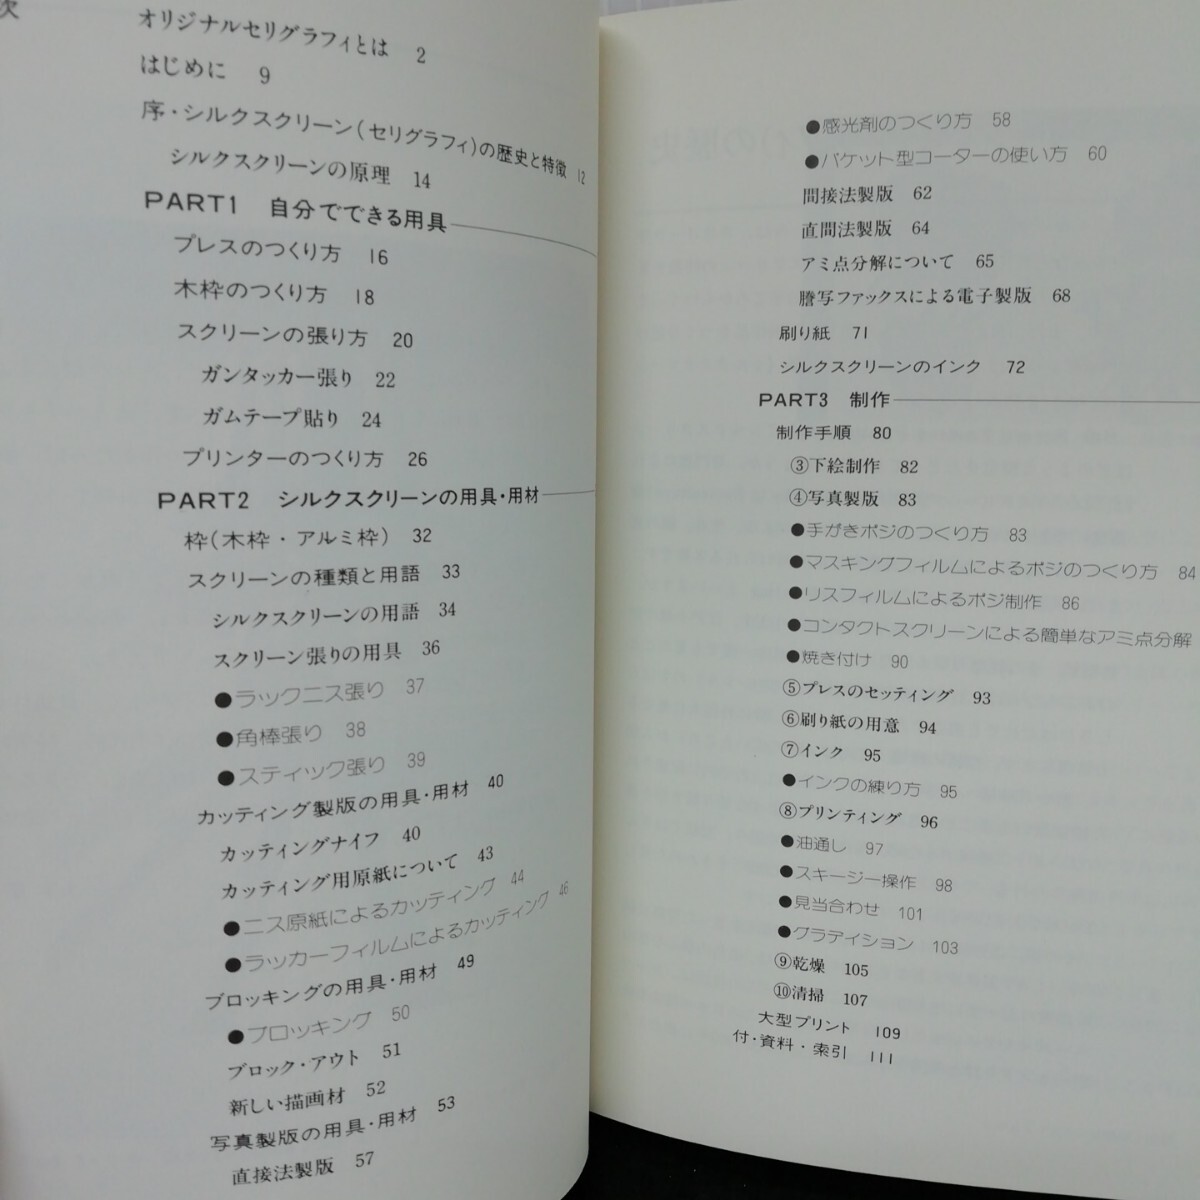 次
オリジナルセリグラフィとは 2
はじめに 9
序・シルクスクリーン(セリグラフィ)の歴史と特徴 12
シルクスクリーンの原理 14
PART1 自分でできる用具
プレスのつくり方 16
木枠のつくり方 18
スクリーンの張り方 20
ガンタッカー張り 22
ガムテープ貼り 24
プリンターのつくり方 26
PART2 シルクスクリーンの用具・用材
枠(木枠・アルミ枠) 32
スクリーンの種類と用語 33
シルクスクリーンの用語 34
スクリーン張りの用具 36
●ラックニス張り 37
●角棒張り 38
●スティック張り 39
カッティング製版の用具・用材 40
カッティングナイフ 40
カッティング用原紙について 43
●ニス原紙によるカッティング 44
●ラッカーフィルムによるカッティング 46
ブロッキングの用具・用材 49
●ブロッキング 50
ブロック・アウト 51
新しい描画材 52
写真製版の用具・用材 53
直接法製版 57
●感光剤のつくり方 58
●バケット型コーターの使い方 60
間接法製版 62
直間法製版 64
アミ点分解について 65
謄写ファックスによる電子製版 68
刷り紙 71
シルクスクリーンのインク 72
PART3 制作
制作手順 80
③下絵制作 82
④写真製版 83
●手がきポジのつくり方 83
●マスキングフィルムによるポジのつくり方 84
●リスフィルムによるポジ制作 86
●コンタクトスクリーンによる簡単なアミ点分解
●焼き付け 90
⑤プレスのセッティング 93
⑥刷り紙の用意 94
⑦インク 95
●インクの練り方 95
⑧プリンティング 96
●油通し 97
●スキージー操作 98
●見当合わせ 101
●グラデイション 103
⑨乾燥 105
⑩清掃 107
大型プリント 109
付・資料・索引 111